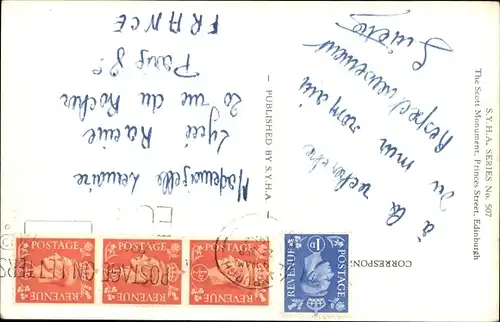 S.Y.H.A. SERIES No. 507
The Scott Monument, Princes Street, Edinburgh
CORRESPON
à la recherche
du mur romain
Respectueusement
— PUBLISHED BY S.Y.H.A. —
Mademoiselle Lemaire
Lycée Racine
20 rue du Rocher
Paris 8e
FRANCE
POSTAGE
REVENUE
POSTAGE
REVENUE
POSTAGE
REVENUE
POSTAGE
1D
REVENUE
POSTAGE
ON LETTERS